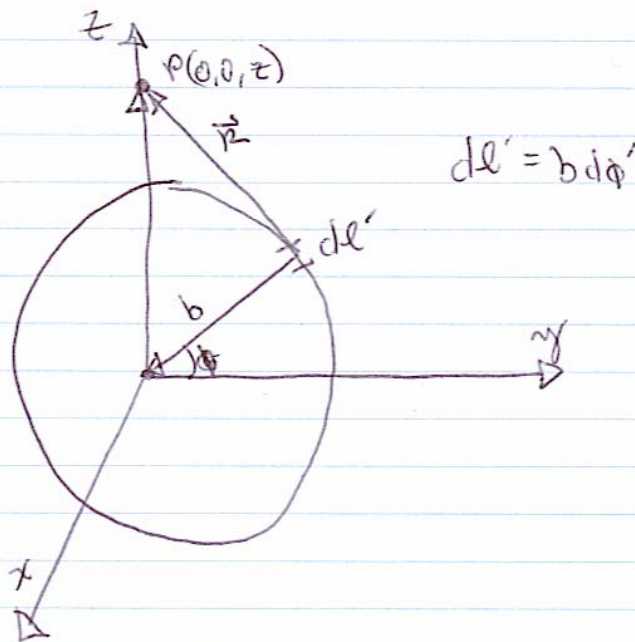 z
P(0,0,z)
R⃗
dl' = b dφ'
dl'
b
φ
y
x